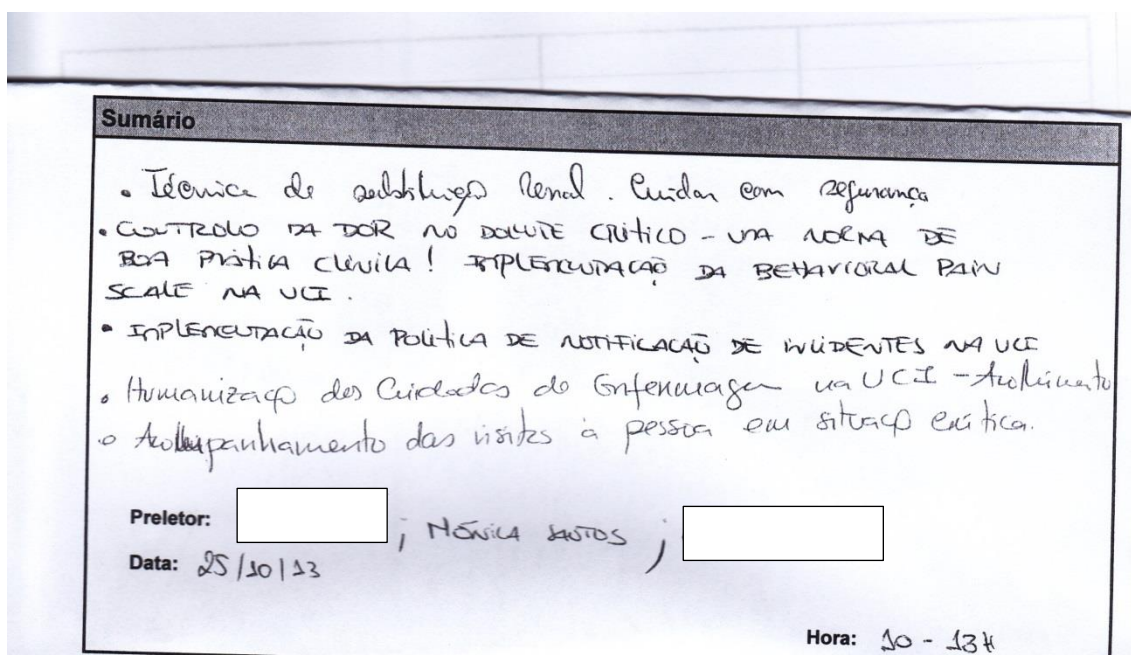 Sumário
• Técnica de substituição Renal. Cuidar com segurança
• CONTROLO DA DOR NO DOENTE CRÍTICO - UMA NORMA DE
BOA PRÁTICA CLÍNICA! IMPLEMENTAÇÃO DA BEHAVIORAL PAIN
SCALE NA UCI.
• IMPLEMENTAÇÃO DA POLÍTICA DE NOTIFICAÇÃO DE INCIDENTES NA UCI
• Humanização dos Cuidados de Enfermagem na UCI - Acolhimento
e Acompanhamento das visitas à pessoa em situação crítica.
Preletor: ; MÓNICA SANTOS ;
Data: 25/10/13
Hora: 10 - 13H